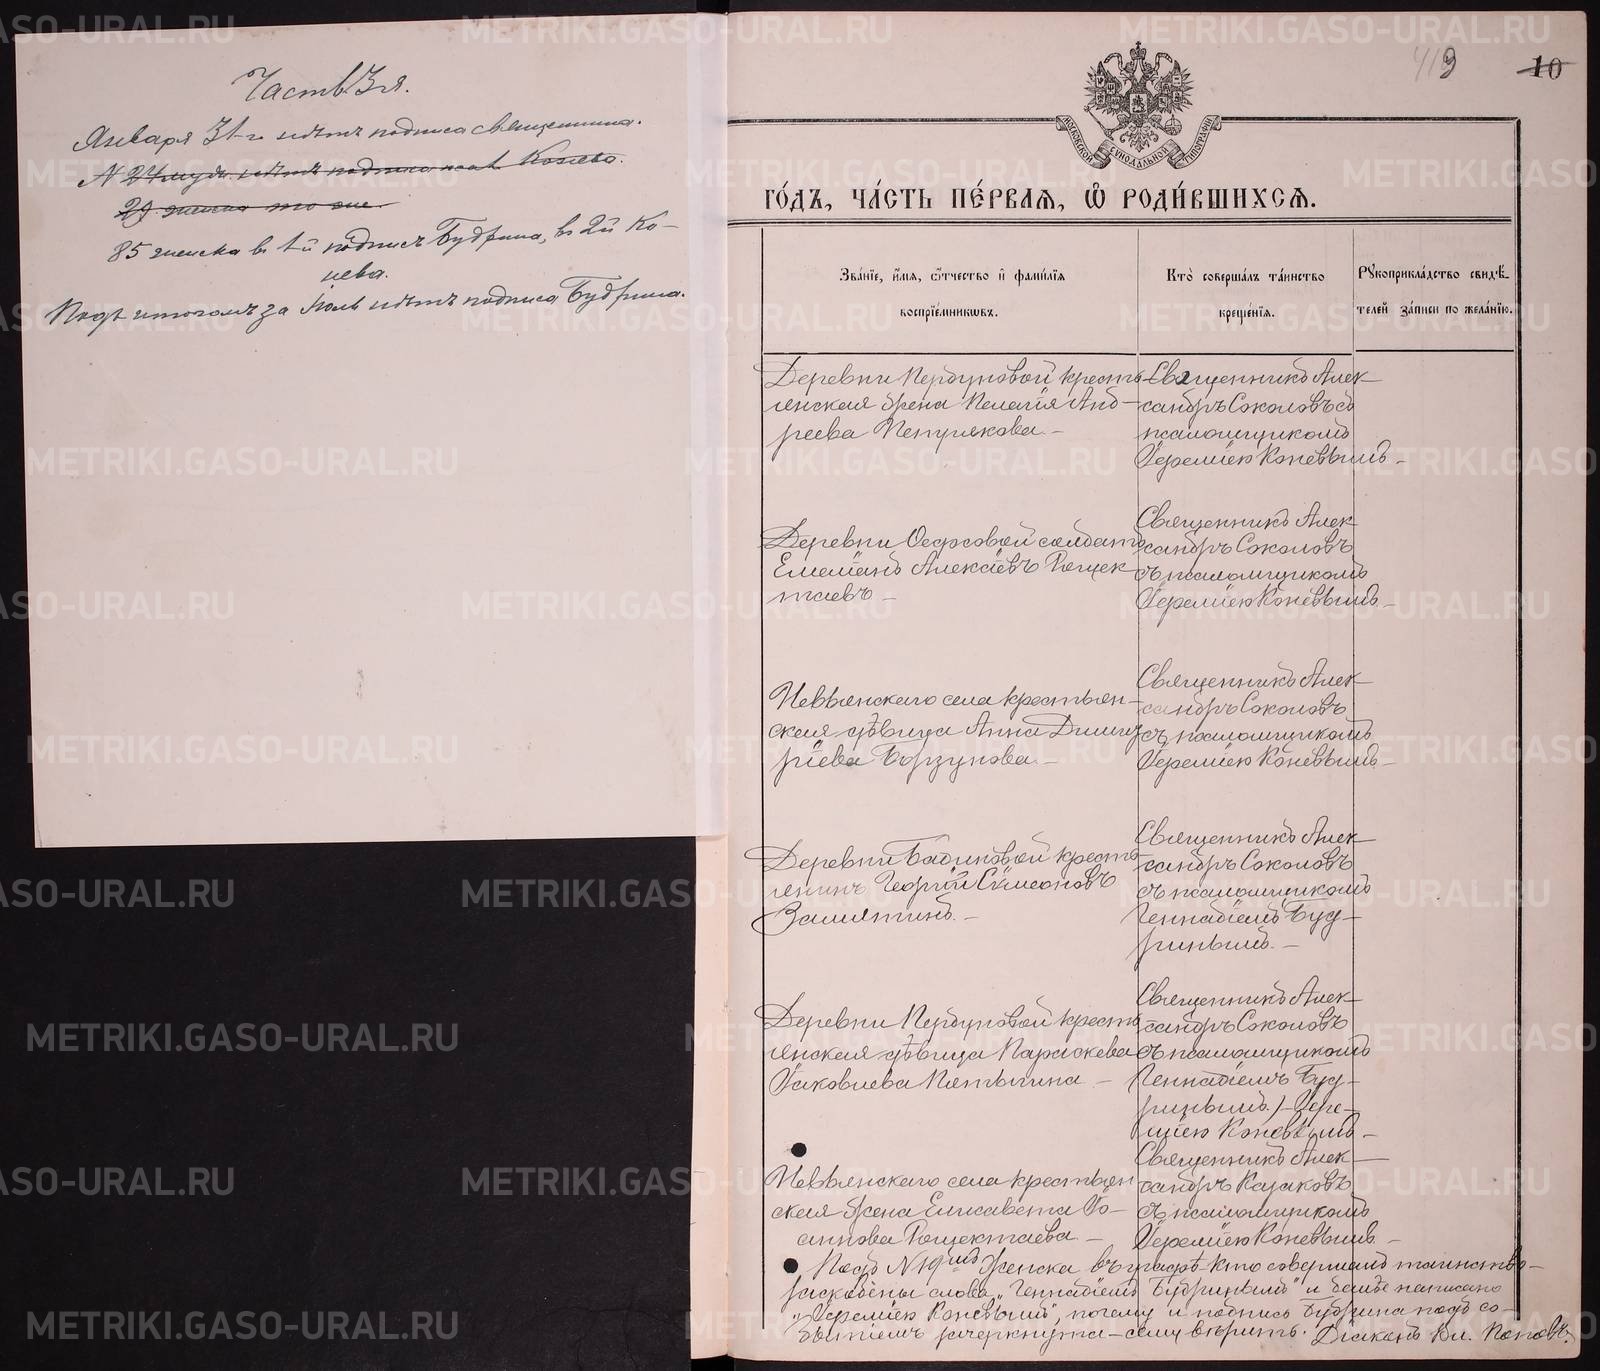 Часть 3я.
Января 31-го нѣтъ подписа священника.
85 женска в 1й подпись Будрина, в 2й Ко-
нева.
Подъ итогомъ за Июль нѣтъ подписа Будрина.
10
МОСКОВСКОЙ СѴНОДАЛЬНОЙ ТИПОГРАФІИ
ГО́ДЪ, ЧА́СТЬ ПЕ́РВАЯ, Ѡ҆ РОДИ́ВШИХСЯ.
Зва́нїе, и҆́мѧ, ѻ҆́тчество и҆ фами́лїѧ
воспрїе́мникѡвъ.
Кто̀ соверша́лъ та́инство
креще́нїѧ.
Рꙋкоприкла́дство свидѣ́-
телей за́писи по жела́нїю.
Деревни Пердуновой кресть-
янская жена Пелагія Анд-
реева Пепулякова
Священникъ Алек-
сандръ Соколовъ съ
псаломщикомъ
Іереміею Коневымъ
Деревни солдатъ
Емеліанъ Алексіевъ Рощек-
таевъ
Священникъ Алек-
сандръ Соколовъ
съ псаломщикомъ
Іереміею Коневымъ
Невьянскаго села крестьян-
ская дѣвица Анна Димит-
ріева Борзунова
Священникъ Алек-
сандръ Соколовъ
съ псаломщикомъ
Іереміею Коневымъ
Деревни кресть-
янинъ Георгій Сѵмеоновъ
Замятинъ
Священникъ Алек-
сандръ Соколовъ
съ псаломщикомъ
Геннадіемъ Буд-
ринымъ
Деревни Пердуновой кресть-
янская дѣвица Параскева
Іаковлева
Священникъ Алек-
сандръ Соколовъ
съ псаломщикомъ
Геннадіемъ Буд-
ринымъ) Іере-
міею Коневымъ
Невьянскаго села крестьян-
ская жена Елисавета Іо-
аннова Рощектаева
Священникъ Алек-
сандръ Казаковъ
съ псаломщикомъ
Іереміею Коневымъ
Подъ № 19мъ женска въ графѣ кто совершалъ таинство
слова „Геннадіемъ Будринымъ" и написано
„Іереміею Коневымъ", почему и подпись Будрина подъ со-
бытіемъ зачеркнута – сему вѣрить. Діаконъ Вл. Поповъ.
METRIKI.GASO-URAL.RU